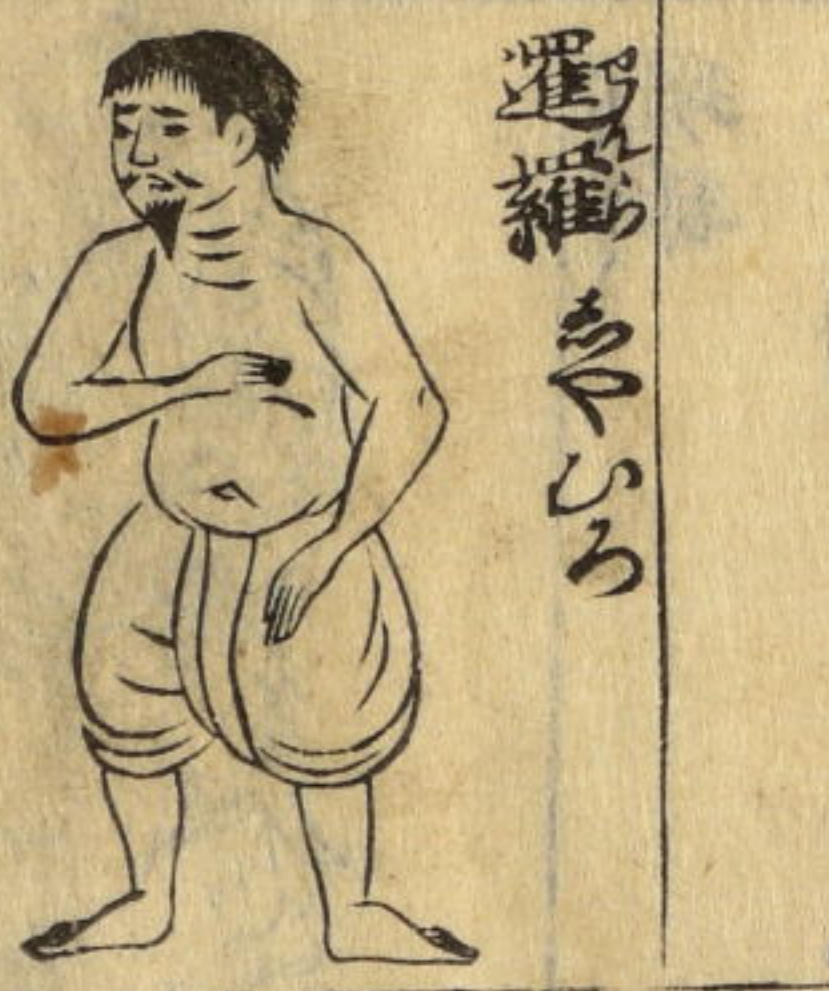 暹羅 しやむろ